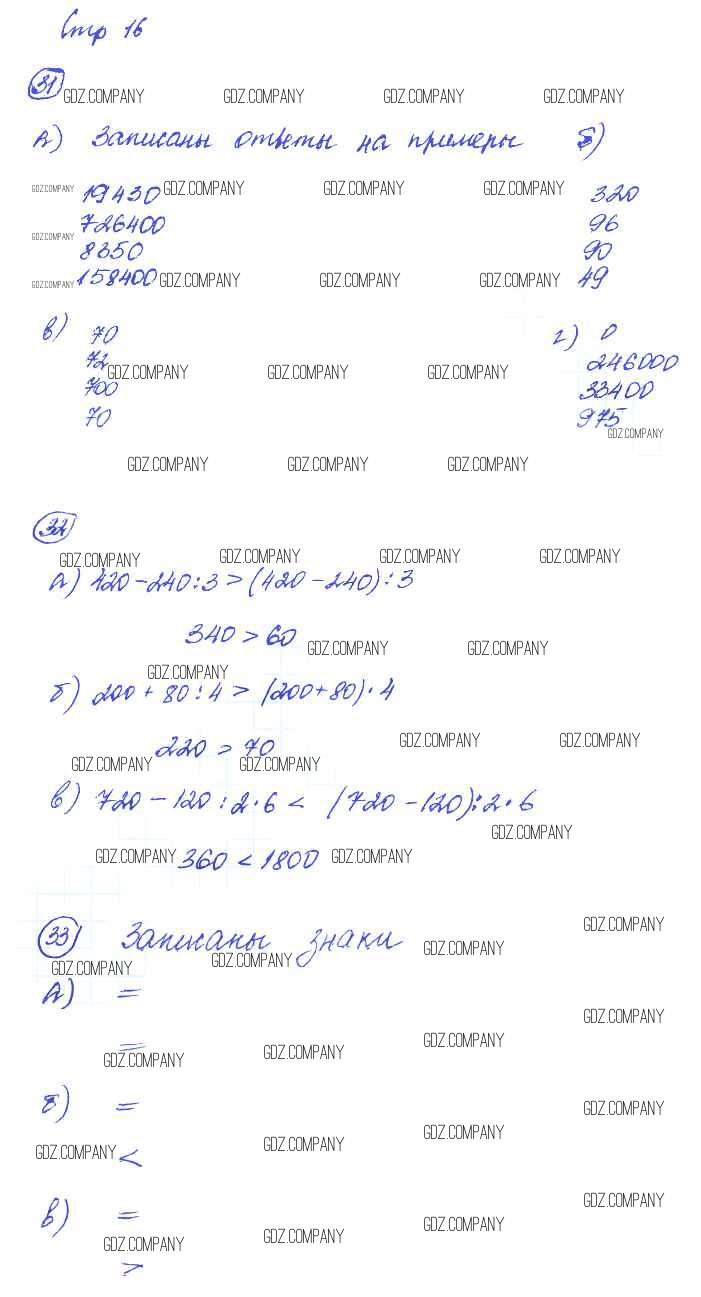 Стр 16
31
GDZ.COMPANY GDZ.COMPANY GDZ.COMPANY GDZ.COMPANY
А) Записаны ответы на примеры б)
GDZ.COMPANY 19430 GDZ.COMPANY GDZ.COMPANY GDZ.COMPANY 320
726400 96
GDZ.COMPANY
8350 90
GDZ.COMPANY 158400 GDZ.COMPANY GDZ.COMPANY GDZ.COMPANY 49
в) 70 г) 0
72 246000
GDZ.COMPANY GDZ.COMPANY GDZ.COMPANY
700 33400
70 975
GDZ.COMPANY
GDZ.COMPANY GDZ.COMPANY GDZ.COMPANY
32
GDZ.COMPANY GDZ.COMPANY GDZ.COMPANY GDZ.COMPANY
а) 420-240:3>(420-240):3
340>60
GDZ.COMPANY GDZ.COMPANY
GDZ.COMPANY
б) 200+80:4>(200+80)·4
220>70
GDZ.COMPANY GDZ.COMPANY
GDZ.COMPANY GDZ.COMPANY
в) 720-120:2·6<(720-120):2·6
GDZ.COMPANY
GDZ.COMPANY 360<1800 GDZ.COMPANY
GDZ.COMPANY
33 Записаны знаки
GDZ.COMPANY
GDZ.COMPANY GDZ.COMPANY
А) =
GDZ.COMPANY
=
GDZ.COMPANY GDZ.COMPANY GDZ.COMPANY
б) =
GDZ.COMPANY
GDZ.COMPANY < GDZ.COMPANY GDZ.COMPANY
GDZ.COMPANY
в) =
GDZ.COMPANY GDZ.COMPANY GDZ.COMPANY
>